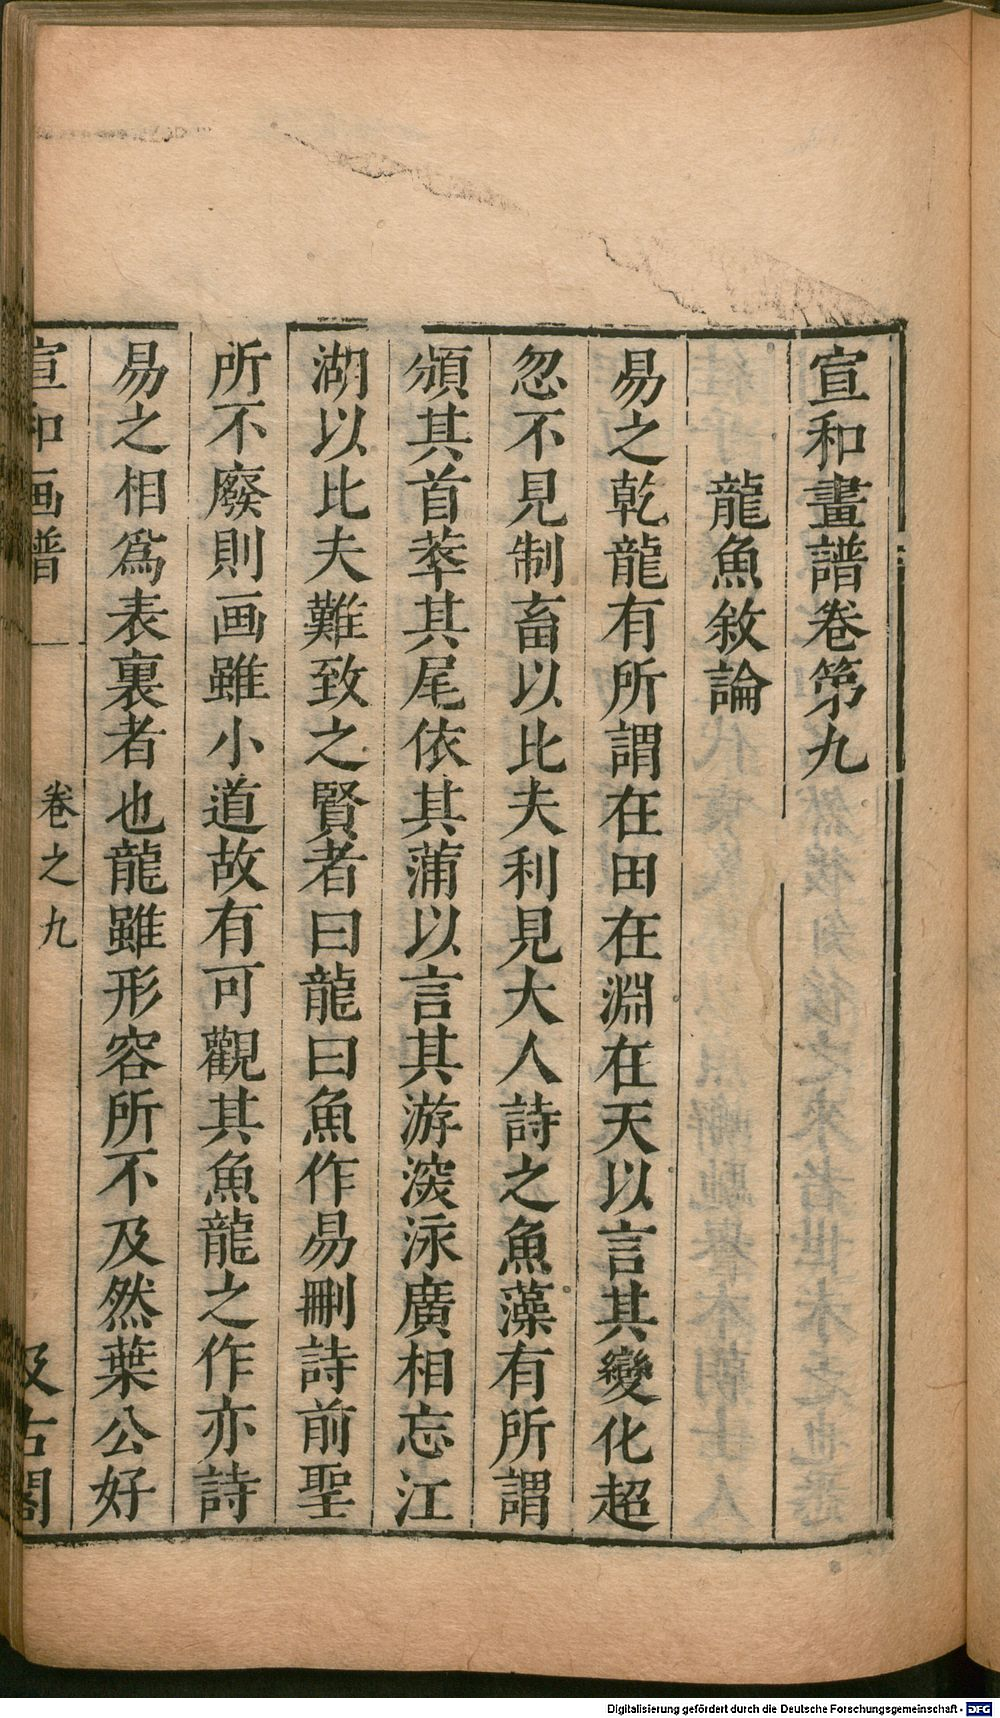 宣和畫譜卷第九
龍魚敘論
易之乾龍有所謂在田在淵在天以言其變化超
忽不見制畜以比夫利見大人詩之魚藻有所謂
頒其首莘其尾依其蒲以言其游深泳廣相忘江
湖以比夫難致之賢者曰龍曰魚作易刪詩前聖
所不廢則画雖小道故有可觀其魚龍之作亦詩
易之相爲表裏者也龍雖形容所不及然葉公好
宣和画譜
卷之九
汲古閣
Digitalisierung gefördert durch die Deutsche Forschungsgemeinschaft - DFG